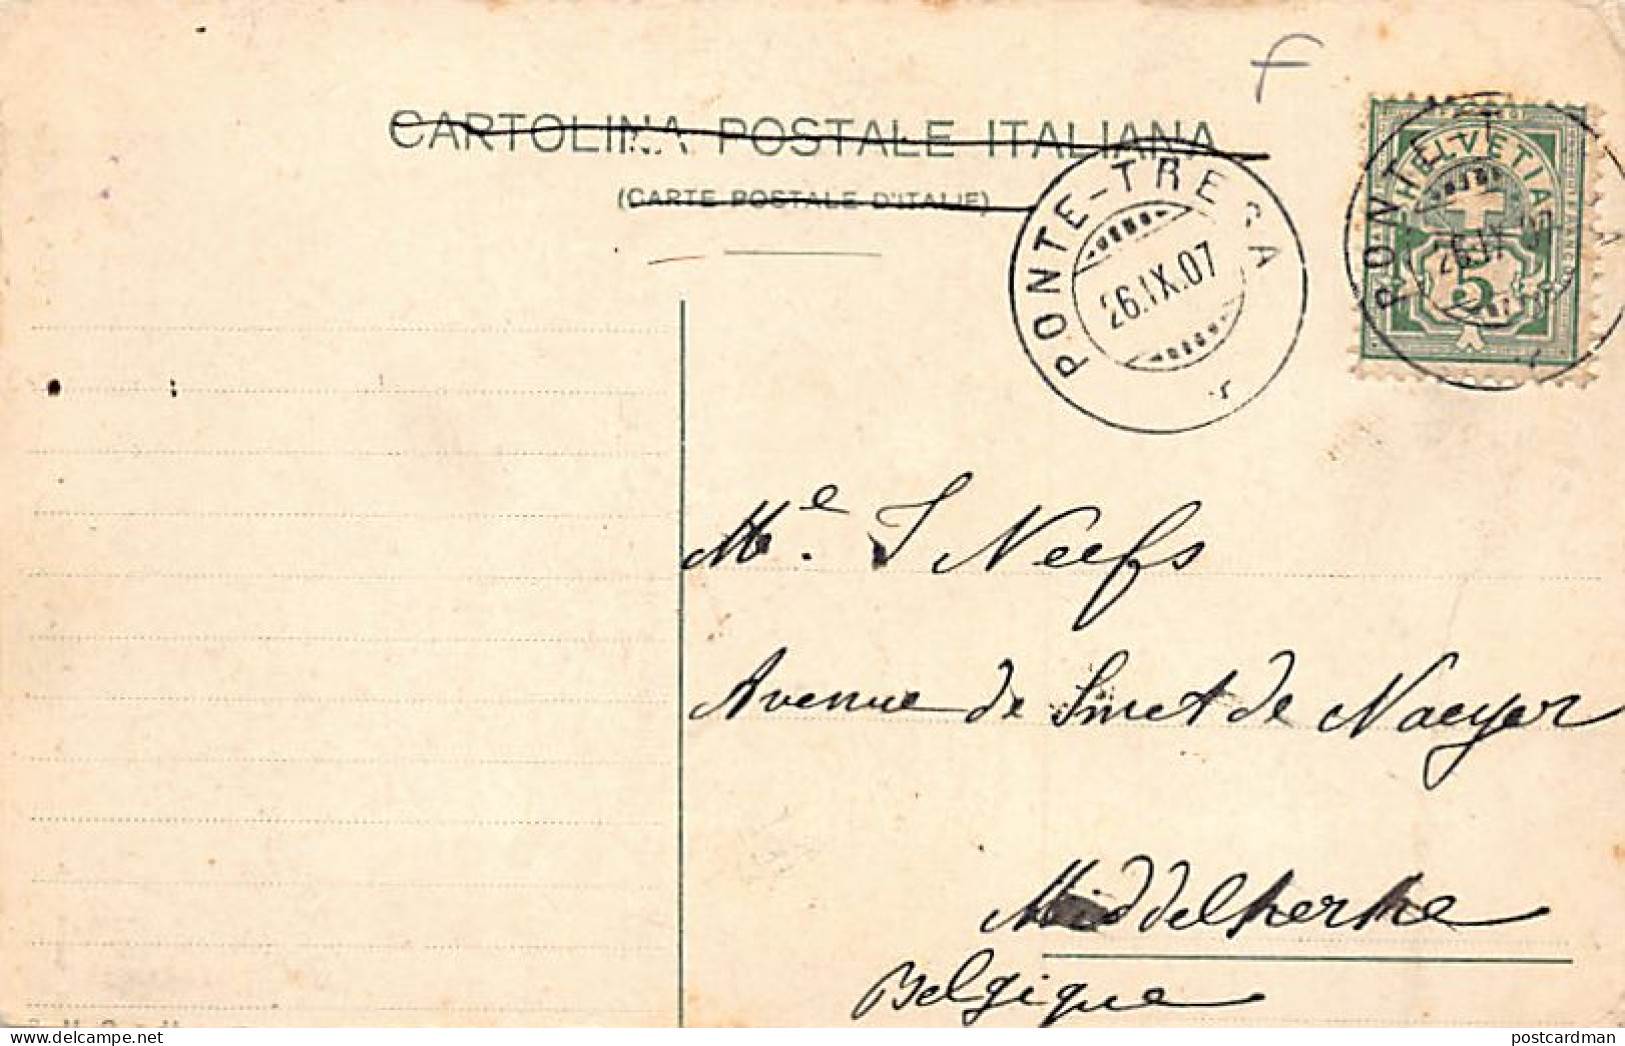 f
CARTOLINA POSTALE ITALIANA
(CARTE POSTALE D'ITALIE)
PONTE-TRESA
26.IX.07
PONTE-T A
26.IX.07
HELVETIA
5
Me. J Neefs
Avenue de Smet de Naeyer
Middelkerke
Belgique
postcardman